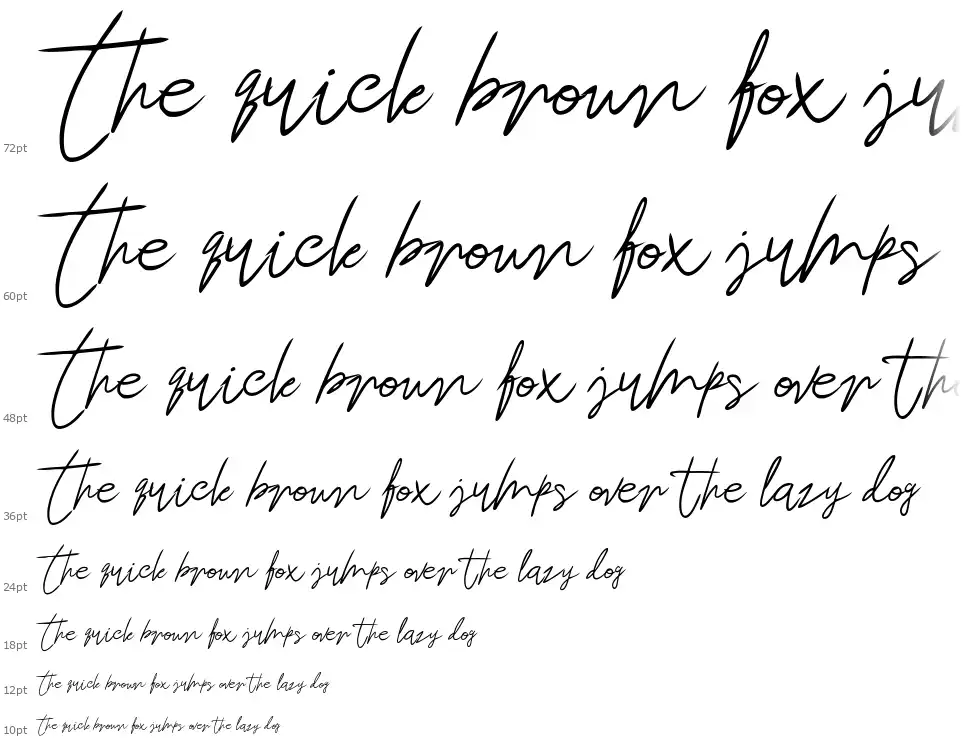 the quick brown fox ju
72pt
the quick brown fox jumps
60pt
the quick brown fox jumps over th
48pt
the quick brown fox jumps over the lazy dog
36pt
the quick brown fox jumps over the lazy dog
24pt
the quick brown fox jumps over the lazy dog
18pt
the quick brown fox jumps over the lazy dog
12pt
the quick brown fox jumps over the lazy dog
10pt